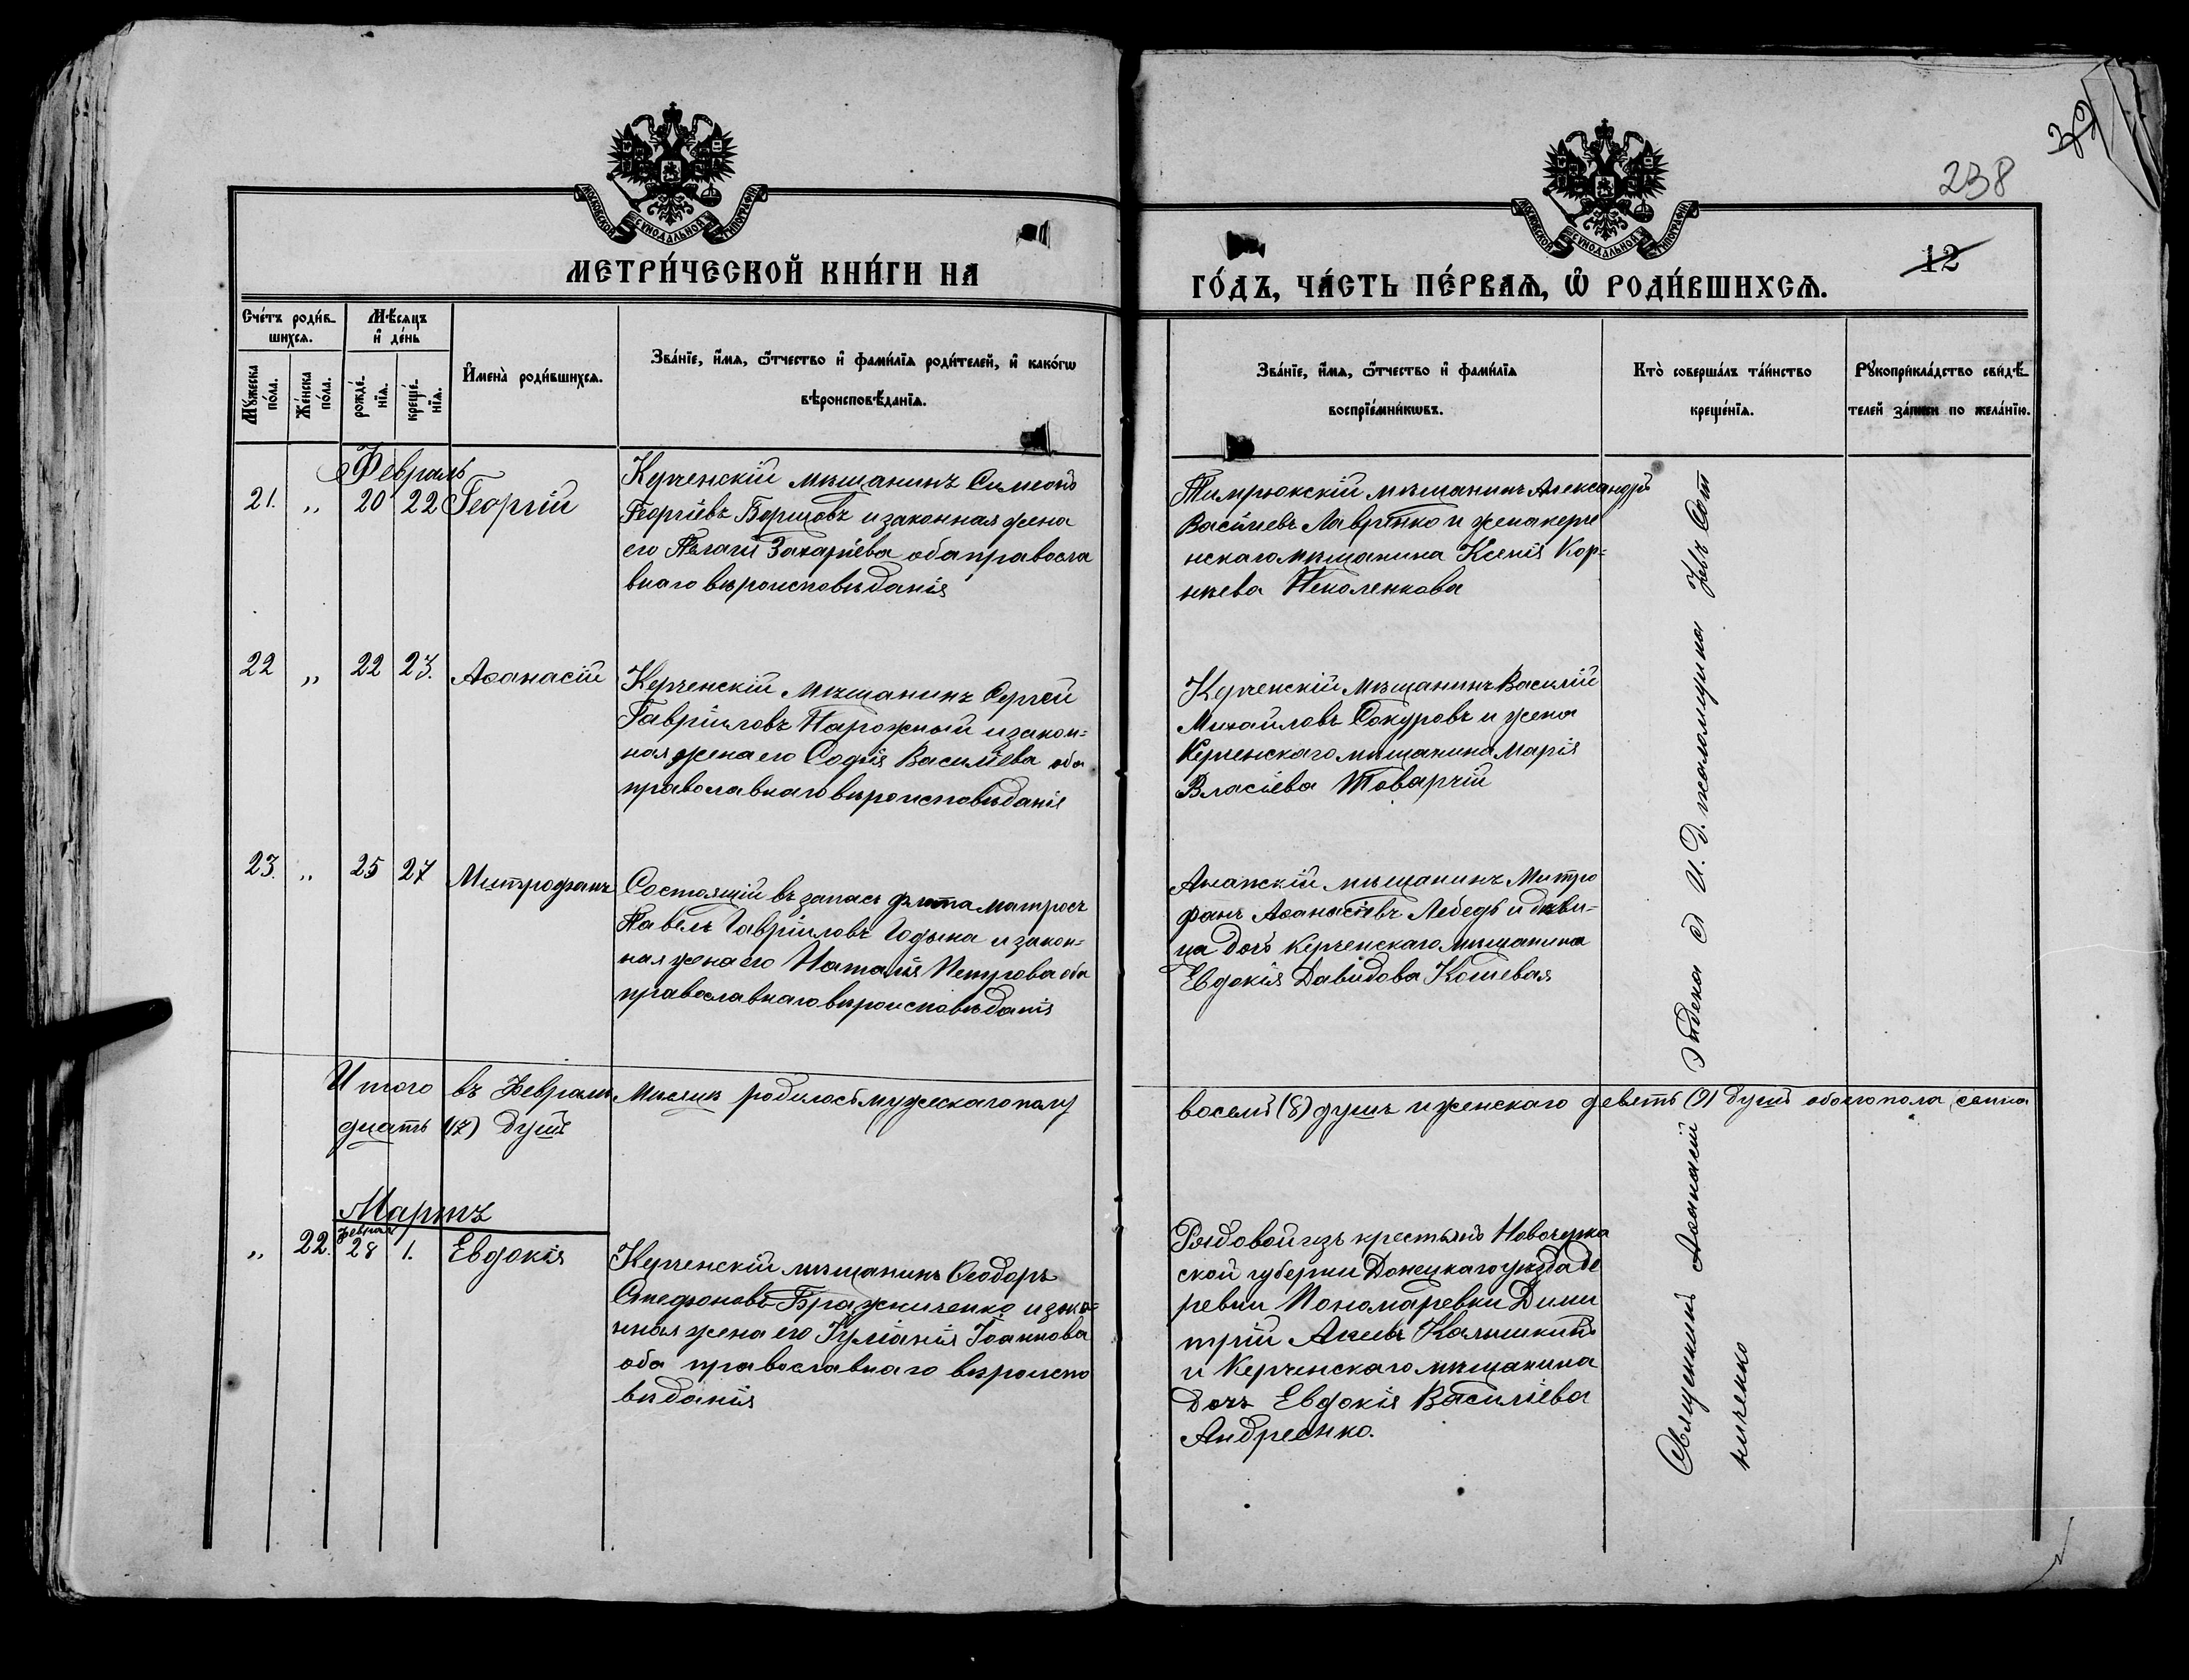 238
32
12
МОСКОВСКОЙ СѴНОДАЛЬНОЙ ТИПОГРАФІИ
МОСКОВСКОЙ СѴНОДАЛЬНОЙ ТИПОГРАФІИ
МЕТРИ́ЧЕСКОЙ КНИ́ГИ НА
ГО́ДЪ, ЧА́СТЬ ПЕ́РВАѦ, Ѽ РОДИ́ВШИХСѦ.
Сче́тъ роди́в-
шихсѧ.
Мꙋ́жеска по́ла.
Же́нска по́ла.
Мѣ́сяцъ
и҆ де́нь
рожде́-
нїѧ.
креще́-
нїѧ.
И҆мена̀ роди́вшихсѧ.
Зва́нїе, и҆́мѧ, ѻ҆́тчество и҆ фами́лїѧ роди́телей, и҆ како́гѡ
вѣроисповѣ́данїѧ.
Зва́нїе, и҆́мѧ, ѻ҆́тчество и҆ фами́лїѧ
воспрїе́мникѡвъ.
Кто̀ соверша́лъ та́инство
креще́нїѧ.
Рꙋкоприкла́дство свидѣ́-
телей за́писи по жела́нїю.
Февраль
21. „ 20 22 Георгій
Керченскій мѣщанинъ Симеонъ
Георгіевъ Борщовъ и законная жена
его Пелагія Захаріева оба правосла
внаго вѣроисповѣданія
Темрюкскій мѣщанинъ Александръ
Васіліевъ Лавринко и жена керче
нскаго мѣщанина Ксенія Кор-
нѣева Неколенкова
22 „ 22 23. Аѳанасій
Керченскій мѣщанинъ Сергей
Гавріиловъ Нарожный и закон-
ная жена его Софія Василіева оба
православнаго вѣроисповѣданія
Керченскій мѣщанинъ Василій
Михайловъ Сокуровъ и жена
Керченскаго мѣщанина Марія
Власіева Товарчій
23. „ 25 27 Митрофанъ
Состоящій въ запасѣ флота матросъ
Павелъ Гавріиловъ Годына и закон-
ная жена его Наталія Петрова оба
православнаго вѣроисповѣданія
Анапскій мѣщанинъ Митро
фанъ Аѳанасіевъ Лебедь и дѣви-
ца дочь Керченскаго мѣщанина
Евдокія Давидова Кошевая
Итого въ Февралѣ Мѣсяцѣ родилось мужескаго полу
восемь (8) душъ и женскаго девять (9) душъ обоего пола семна
дцать (17) душъ
Мартъ
Февраля
„ 22. 28 1. Евдокія
Керченскій мѣщанинъ Ѳеодоръ
Стефановъ Бражниченко и зако-
нная жена его Іуліанія Іоаннова
оба православнаго вѣроиспо
вѣданія
Рядовой изъ крестьянъ Новочерка
ской губерніи Донецкаго уѣзда де
ревни Пономаревки Дими
трій Акиевъ Калышкинъ
и Керченскаго мѣщанина
дочь Евдокія Василіева
Андреенко.
Священникъ Аѳанасій И. Д. псаломщика